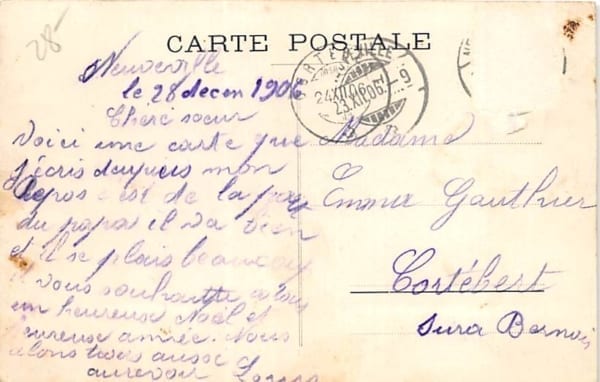 28-
CARTE POSTALE
Neuveville
le 28 decem 1906
Chere soeur
Voici une carte que
j'écris depuis mon
Repos c'est de la part
du papa il va bien
et il se plais beaucoup
il vous souhaitte a tous
un heureux Noël et
heureuse année. Nous
alons tous aussi
aurevoir
CORTÉBERT
NEUVEVILLE
24.XII.06.
23.XII.06. 9
Madame
Emma Gauthier
Cortébert
Jura Bernois